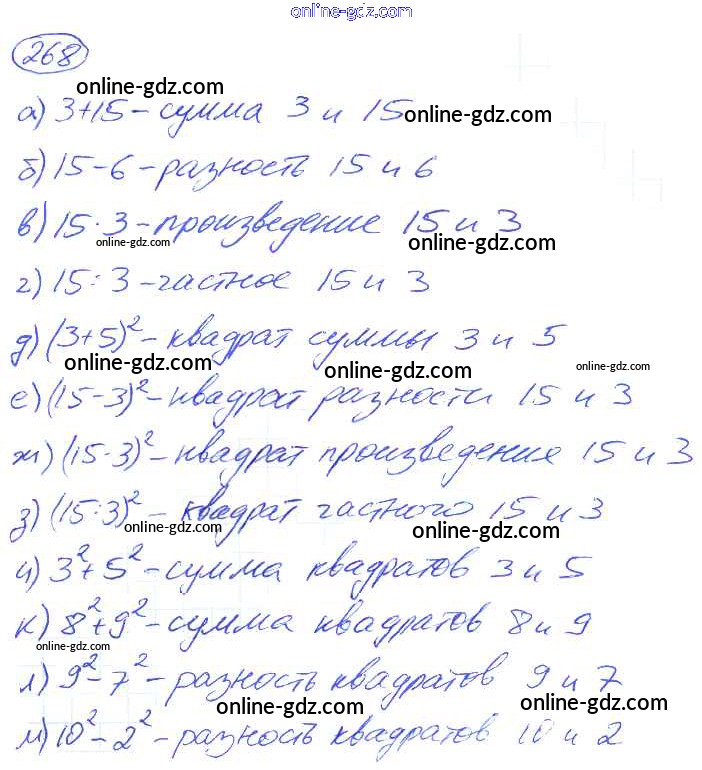 online-gdz.com
268
online-gdz.com
а) 3+15 - сумма 3 и 15
online-gdz.com
б) 15-6 - разность 15 и 6
в) 15·3 - произведение 15 и 3
online-gdz.com
online-gdz.com
г) 15:3 - частное 15 и 3
д) (3+5)² - квадрат суммы 3 и 5
online-gdz.com
online-gdz.com
online-gdz.com
е) (15-3)² - квадрат разности 15 и 3
ж) (15·3)² - квадрат произведение 15 и 3
з) (15:3)² - квадрат частного 15 и 3
online-gdz.com
online-gdz.com
и) 3²+5² - сумма квадратов 3 и 5
к) 8²+9² - сумма квадратов 8 и 9
online-gdz.com
л) 9²-7² - разность квадратов 9 и 7
online-gdz.com
online-gdz.com
м) 10²-2² - разность квадратов 10 и 2